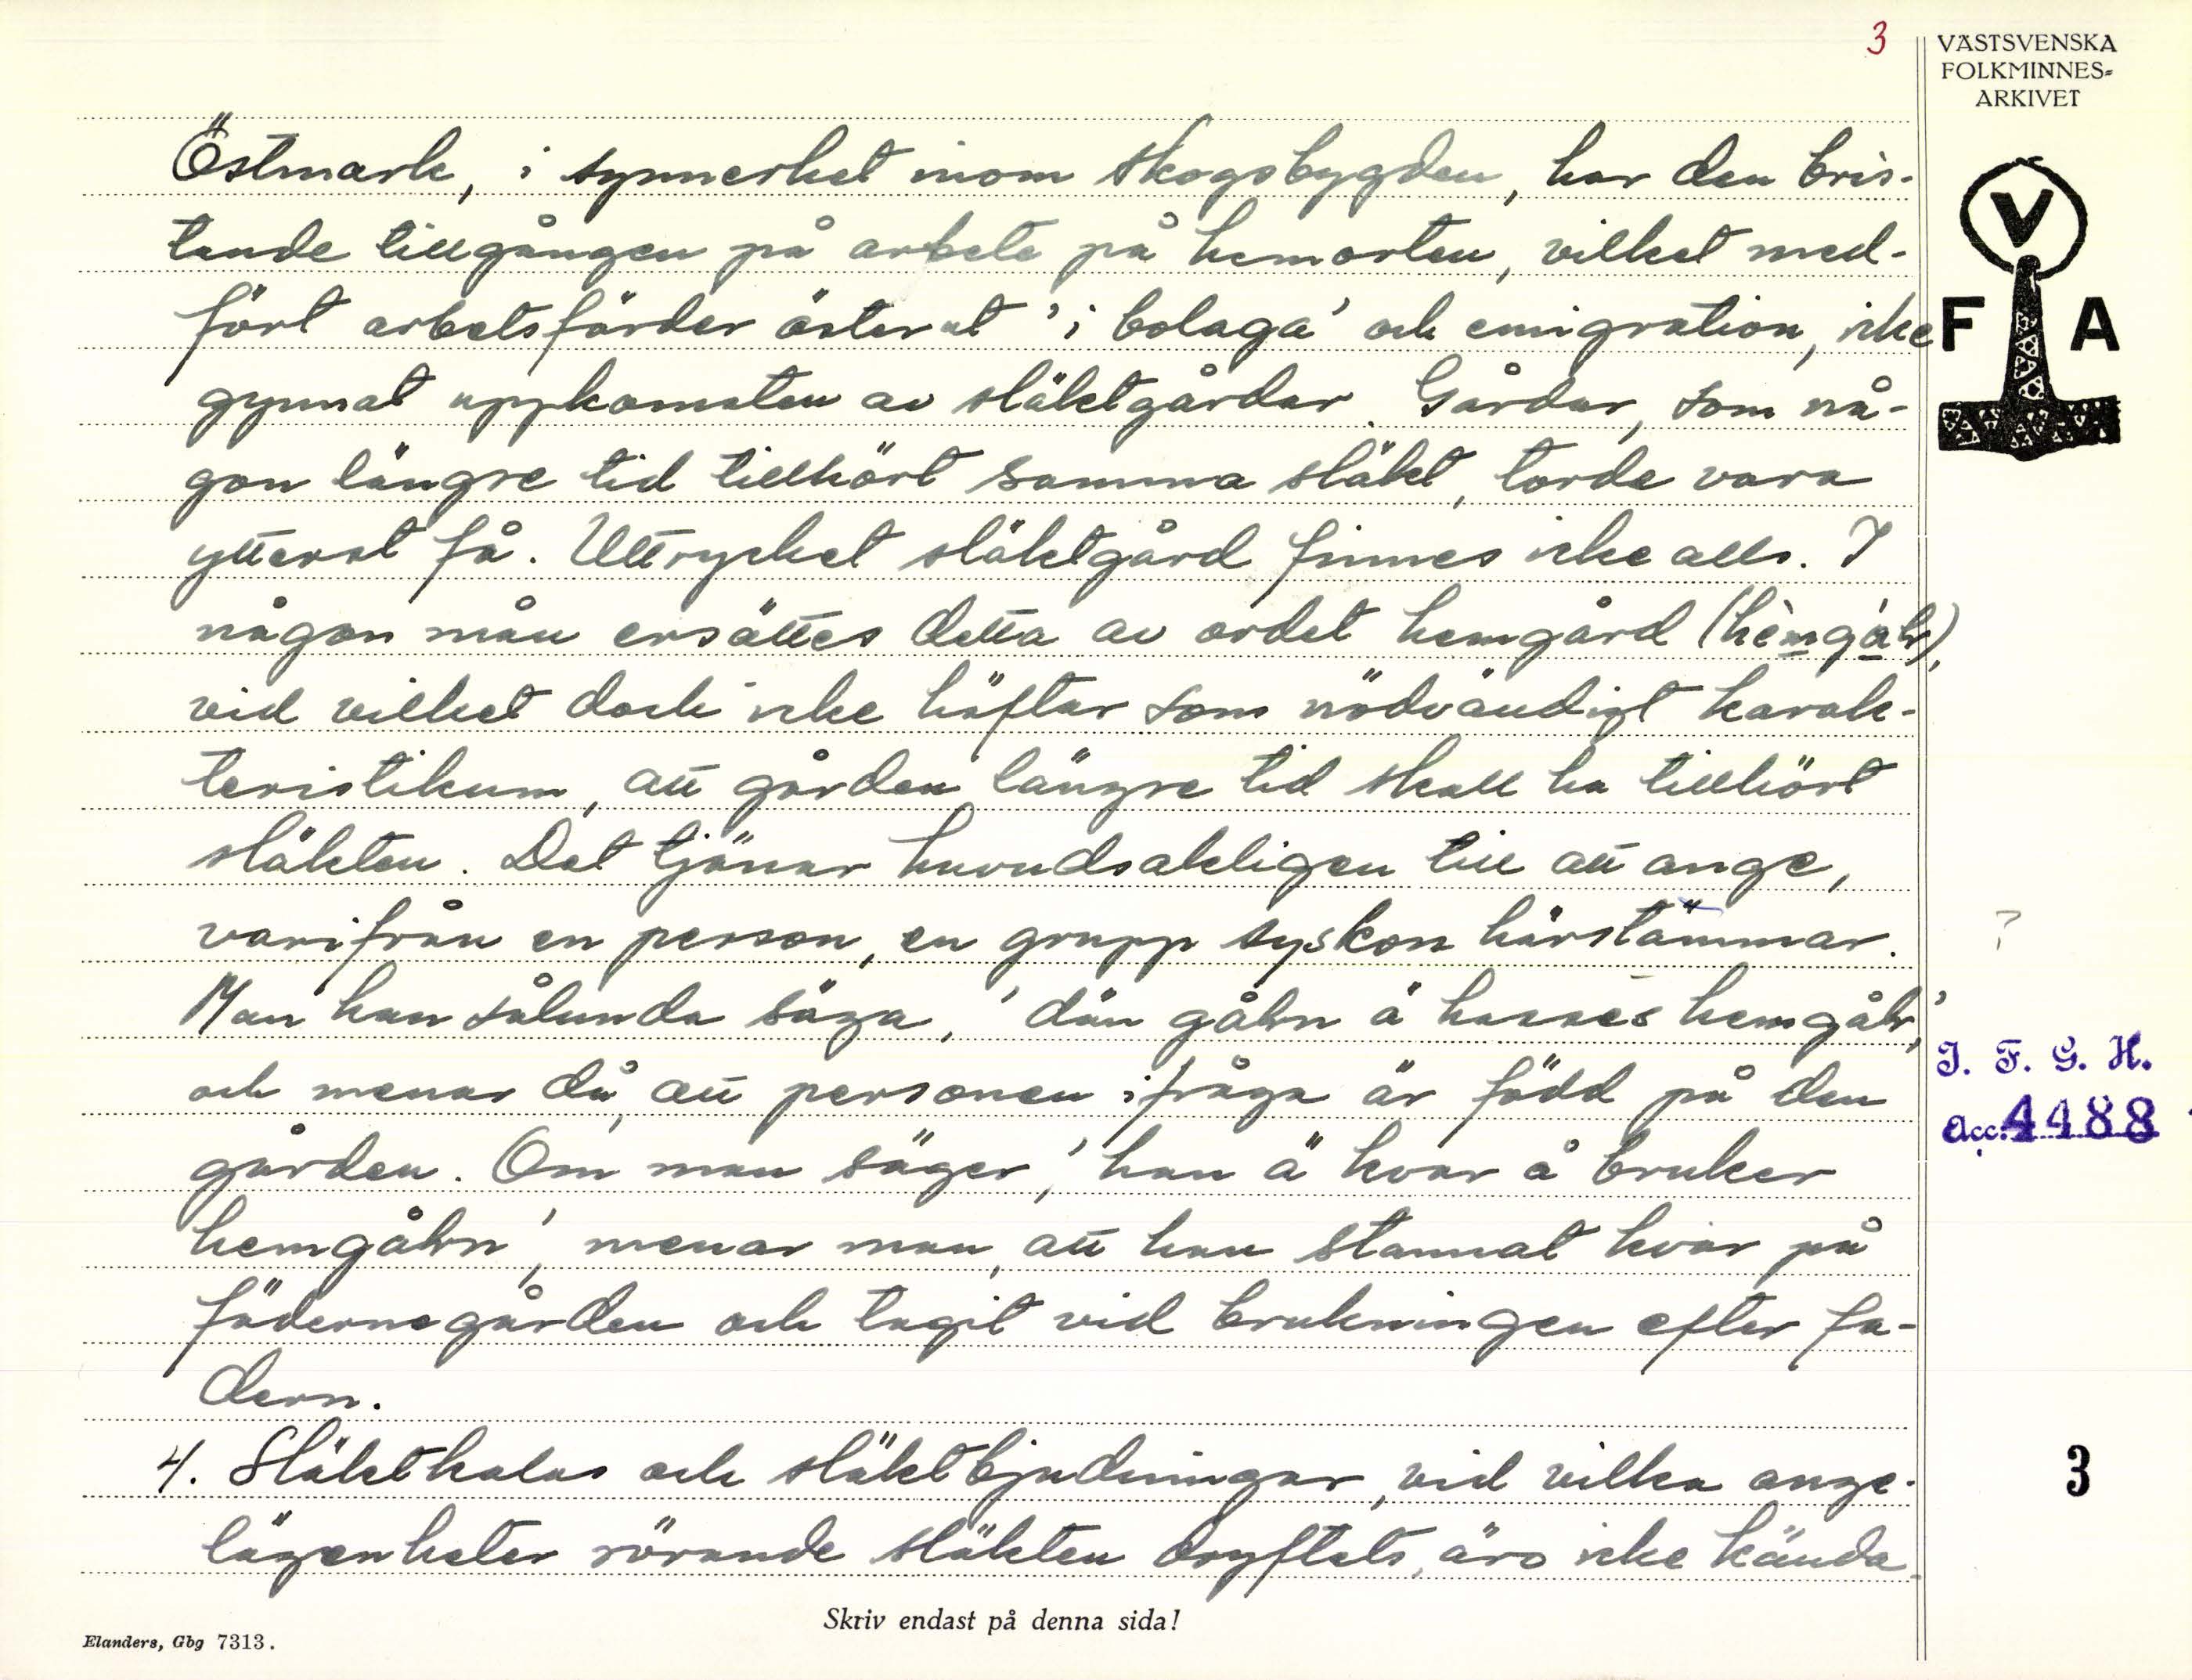 3
VÄSTSVENSKA
FOLKMINNES-
ARKIVET
V
F A
Östmark, i synnerhet inom skogsbygden, har den bris-
tande tillgången på arbete på hemorten, vilket med-
fört arbetsfärder österut 'i bolaga' och emigration, icke
gynnat uppkomsten av släktgårdar. Gårdar, som nå-
gon längre tid tillhört samma släkt, torde vara
ytterst få. Uttrycket släktgård finnes icke alls. I
någon mån ersättes detta av ordet hemgård
vid vilket dock icke häftar som nödvändigt karak-
teristikum, att gården längre tid skall ha tillhört
släkten. Det tjänar huvudsakligen till att ange,
varifrån en person, en grupp syskon härstammar.
?
Man kan sålunda säga, 'dän gåln ä hannes hemgål',
och menar då, att personen ifråga är född på den
gården. Om man säger, 'han ä kvar å bruker
hemgåln', menar man, att han stannat kvar på
fädernegården och tagit vid brukningen efter fa-
dern.
4. Släktkalas och släktbjudningar, vid vilka ange-
lägenheter rörande släkten dryftats, äro icke kända.
I. F. G. H.
Acc. 4488
3
Skriv endast på denna sida!
Elanders, Gbg 7313.